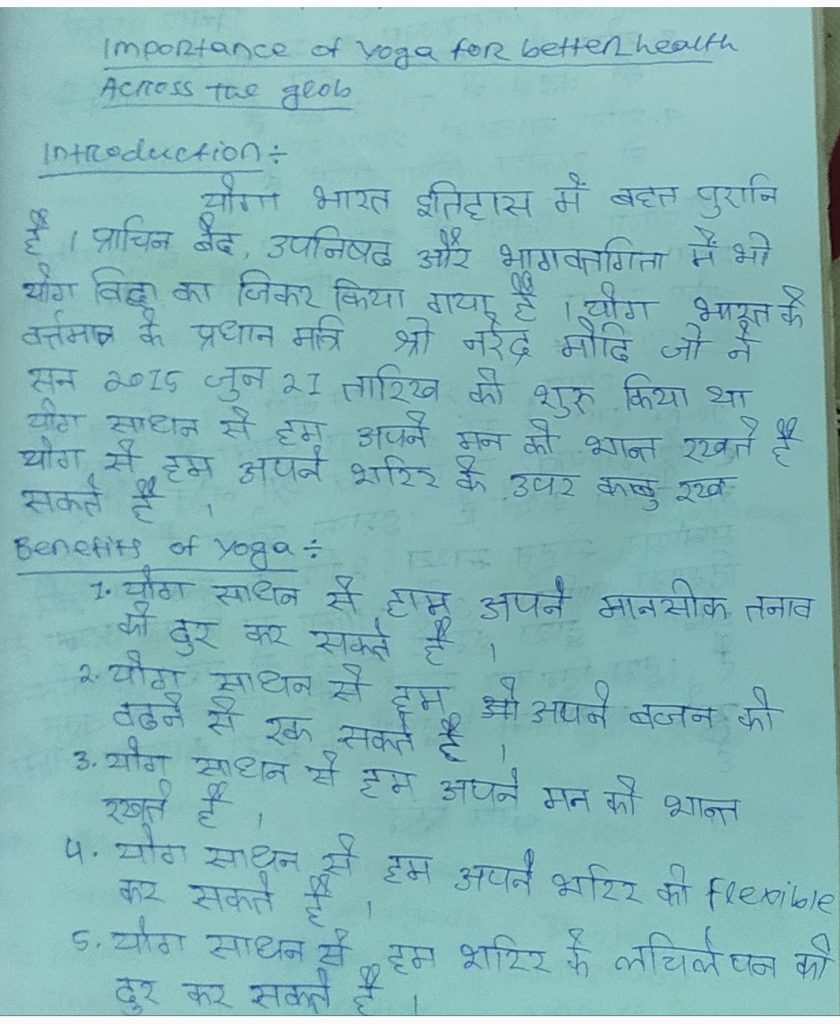 Importance of yoga for better health
Across the glob
Introduction ÷
योगा भारत इतिहास में बहत पुरानि
है । प्राचिन बैद, उपनिषद और भागवतगिता में भी
योग विद्या का जिकर किया गया है । योग भारत के
वर्त्तमान के प्रधान मंत्रि श्री नरेंद्र मौदि जी ने
सन 2015 जुन 21 तारिख को शुरु किया था
योग साधन से हम अपने मन को शान्त रखते है
योग से हम अपने शरिर के उपर काबु रख
सकते है ।
Benefits of yoga ÷
1. योग साधन से हाम अपने मानसीक तनाव
को दुर कर सकते है ।
2. योग साधन से हम अपने बजन को
वढने से रक सकते है ।
3. योग साधन से हम अपने मन को शान्त
रखते है ।
4. योग साधन से हम अपने शरिर को flexible
कर सकते है ।
5. योग साधन से हम शरिर के लचिलेपन को
दुर कर सकते है ।